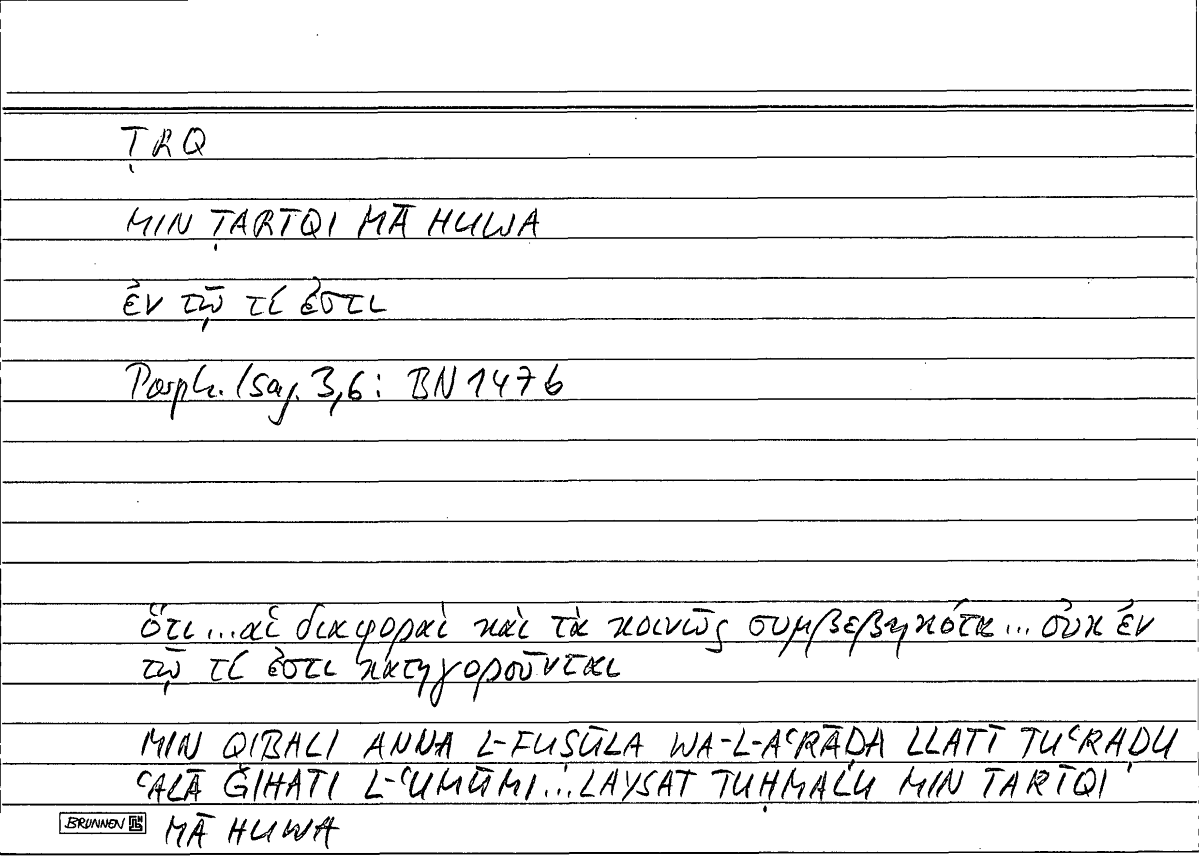 ṬRQ
MIN ṬARĪQI MĀ HUWA
ἐν τῷ τί ἐστι
Porph. Isag. 3,6: BN 147b
ὅτι...αἱ διαφοραὶ καὶ τὰ κοινῶς συμβεβηκότα...οὐκ ἐν
τῷ τί ἐστι κατηγοροῦνται
MIN QIBALI ANNA L-FUṢŪLA WA-L-AʿRĀḌA LLATĪ TUʿRAḌU
ʿALĀ ǦIHATI L-ʿUMŪMI...LAYSAT TUḤMALU MIN TARĪQI
MĀ HUWA
BRUNNEN